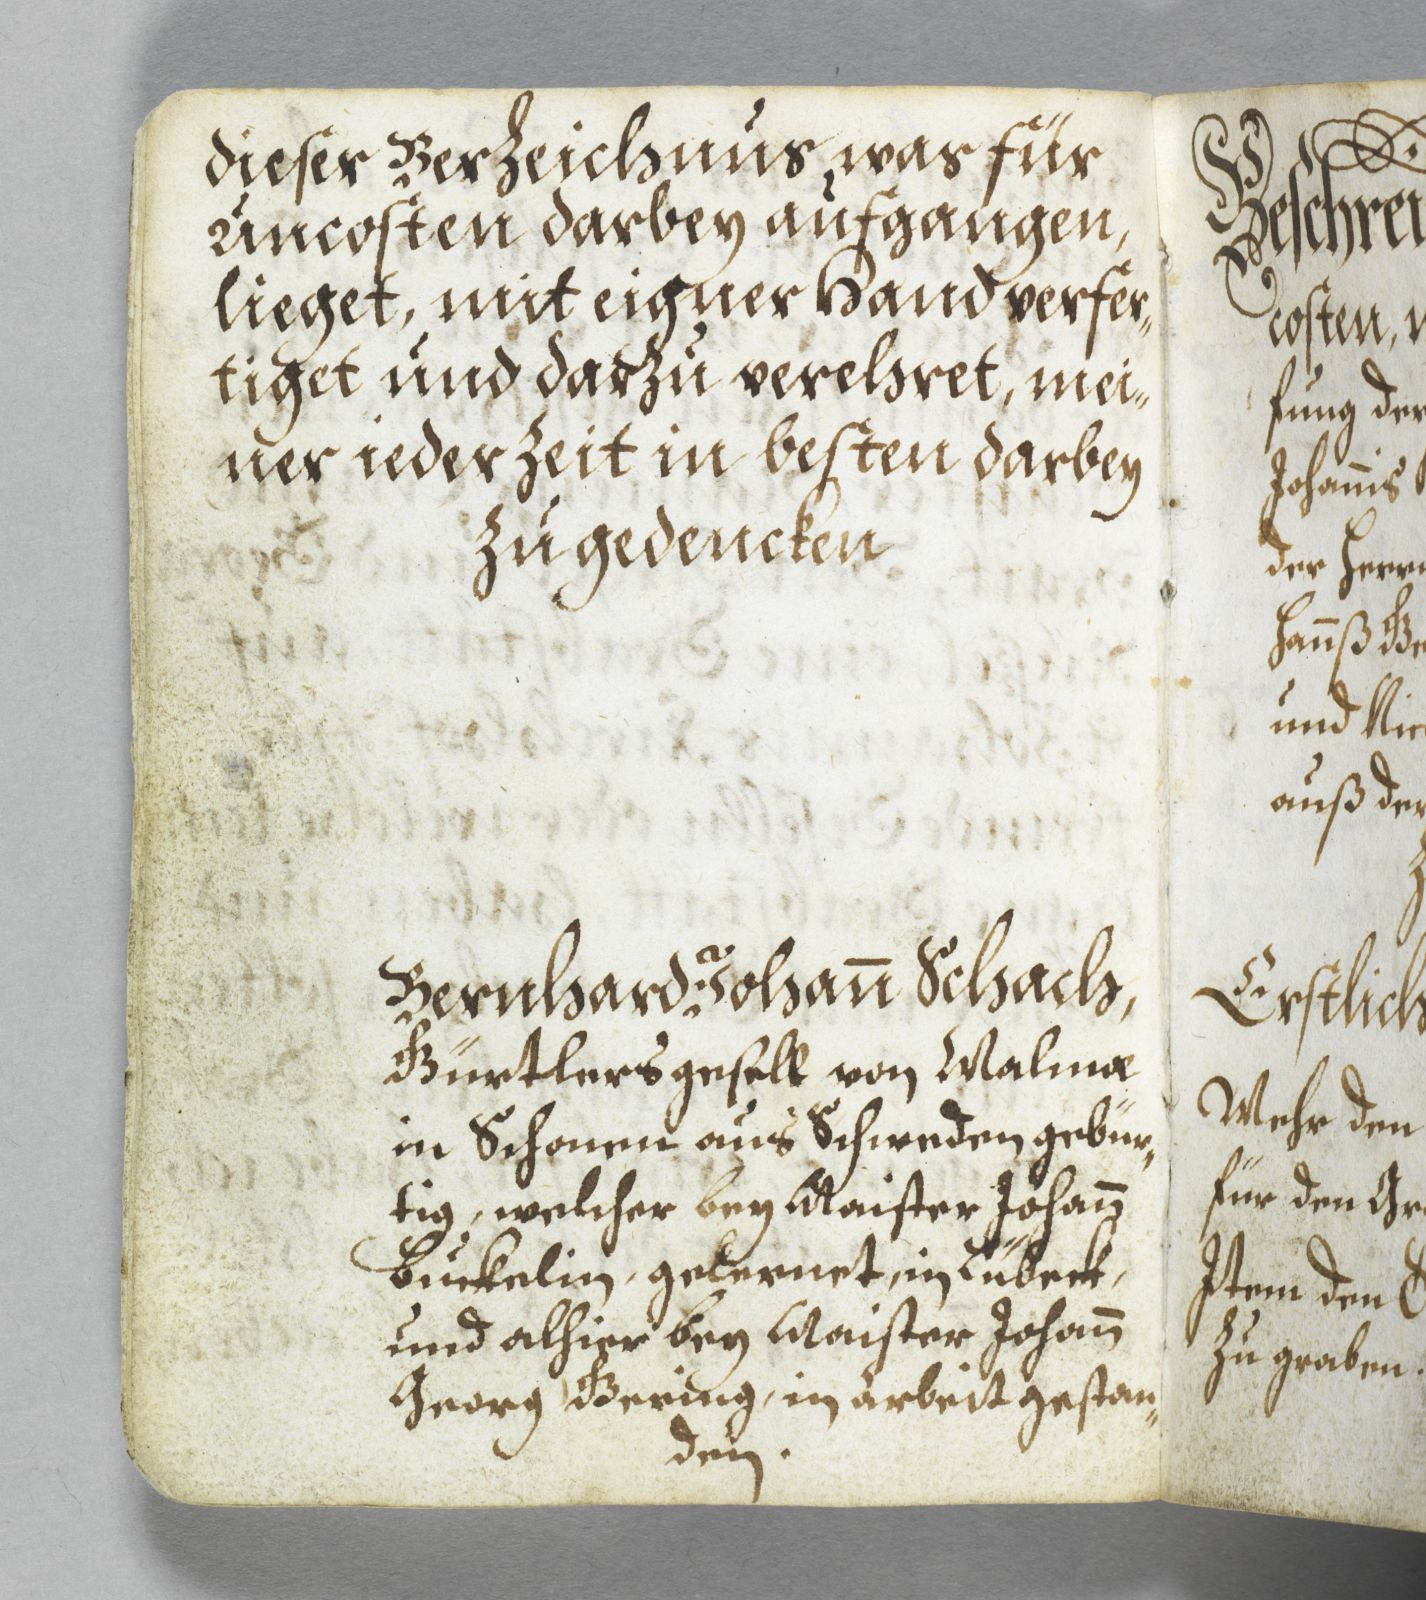 dieser Verzeichnus, was für
Uncosten darbey aufgangen,
lieget, mit eigner Hand verfer„
tiget und darzu verehret, mei„
ner ieder Zeit in besten darbey
zu gedencken
Bernhard Johan̄ Schach,
Gürtlersgesell von Malmæ
in Schonen aus Schweden gebür„
tig, welcher bey Maister Johan̄
Buckelin, gelernet, in Lübeck,
und alhier bey Maister Johan̄
Georg Bering, in arbeit gestan„
den.
Beschrei
costen,
fung der
Johan̄is
der Herrn
Han̄ß
und
auß der
Erstlich
Mehr den
für den
Item den
zu graben.